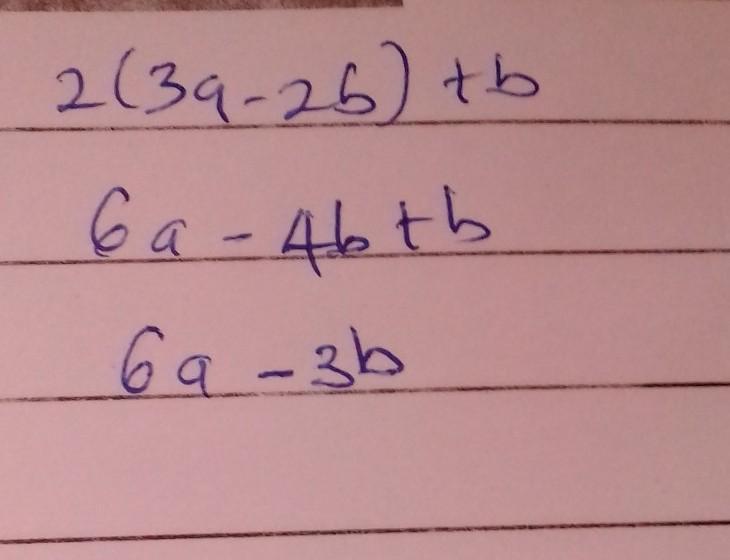 2(3a-2b)+b
6a-4b+b
6a-3b